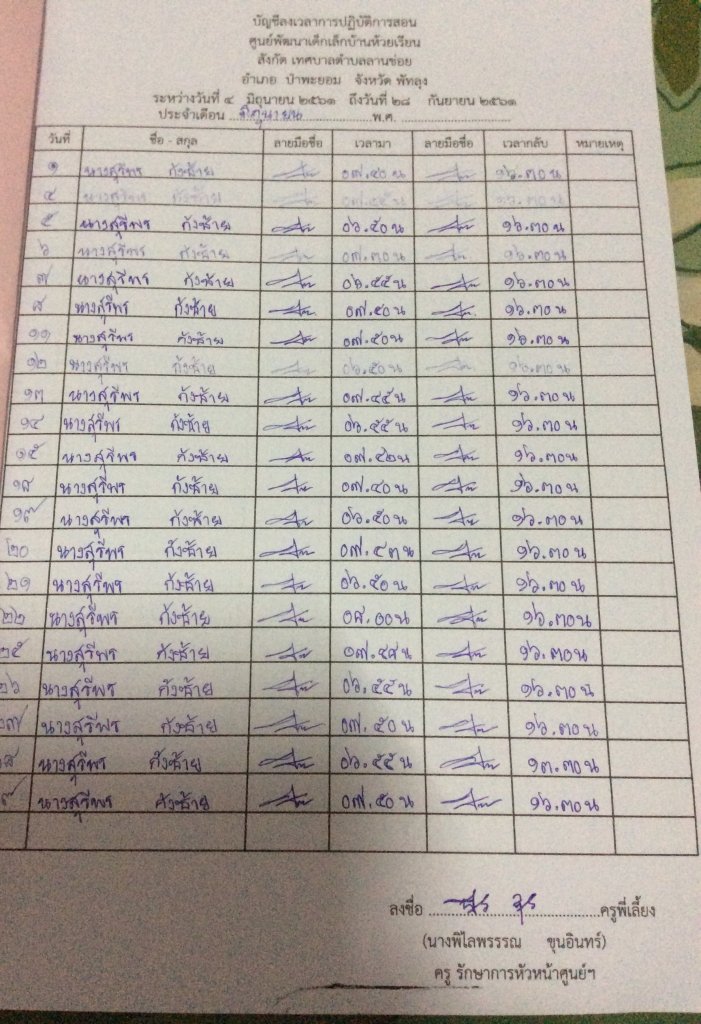 บัญชีลงเวลาการปฏิบัติการสอน
ศูนย์พัฒนาเด็กเล็กบ้านห้วยเรียน
สังกัด เทศบาลตำบลลานข่อย
อำเภอ ป่าพะยอม จังหวัด พัทลุง
ระหว่างวันที่ ๔ มิถุนายน ๒๕๖๑ ถึงวันที่ ๒๘ กันยายน ๒๕๖๑
ประจำเดือน มิถุนายน พ.ศ.
วันที่ ชื่อ - สกุล ลายมือชื่อ เวลามา ลายมือชื่อ เวลากลับ หมายเหตุ
๑ นางสุรีพร กังซ้าย ๐๗.๔๐น ๑๖.๓๐น
๔ นางสุรีพร กังซ้าย ๐๗.๔๕น ๑๖.๓๐น
๕ นางสุรีพร กังซ้าย ๐๖.๕๐น ๑๖.๓๐น
๖ นางสุรีพร กังซ้าย ๐๗.๓๐น ๑๖.๓๐น
๗ นางสุรีพร กังซ้าย ๐๖.๕๕น ๑๖.๓๐น
๘ นางสุรีพร กังซ้าย ๐๗.๕๐น ๑๖.๓๐น
๑๑ นางสุรีพร กังซ้าย ๐๗.๕๐น ๑๖.๓๐น
๑๒ นางสุรีพร กังซ้าย ๐๖.๕๐น ๑๖.๓๐น
๑๓ นางสุรีพร กังซ้าย ๐๗.๔๕น ๑๖.๓๐น
๑๔ นางสุรีพร กังซ้าย ๐๖.๕๕น ๑๖.๓๐น
๑๕ นางสุรีพร กังซ้าย ๐๗.๔๒น ๑๖.๓๐น
๑๘ นางสุรีพร กังซ้าย ๐๗.๔๐น ๑๖.๓๐น
๑๙ นางสุรีพร กังซ้าย ๐๖.๕๐น ๑๖.๓๐น
๒๐ นางสุรีพร กังซ้าย ๐๗.๔๓น ๑๖.๓๐น
๒๑ นางสุรีพร กังซ้าย ๐๖.๕๐น ๑๖.๓๐น
๒๒ นางสุรีพร กังซ้าย ๐๘.๐๐น ๑๖.๓๐น
๒๕ นางสุรีพร กังซ้าย ๐๗.๔๘น ๑๖.๓๐น
๒๖ นางสุรีพร กังซ้าย ๐๖.๕๕น ๑๖.๓๐น
๗ นางสุรีพร กังซ้าย ๐๗.๕๐น ๑๖.๓๐น
๘ นางสุรีพร กังซ้าย ๐๖.๕๕น ๑๓.๓๐น
๙ นางสุรีพร กังซ้าย ๐๗.๕๐น ๑๖.๓๐น
ลงชื่อ ครูพี่เลี้ยง
(นางพิไลพรรรณ ขุนอินทร์)
ครู รักษาการหัวหน้าศูนย์ฯ